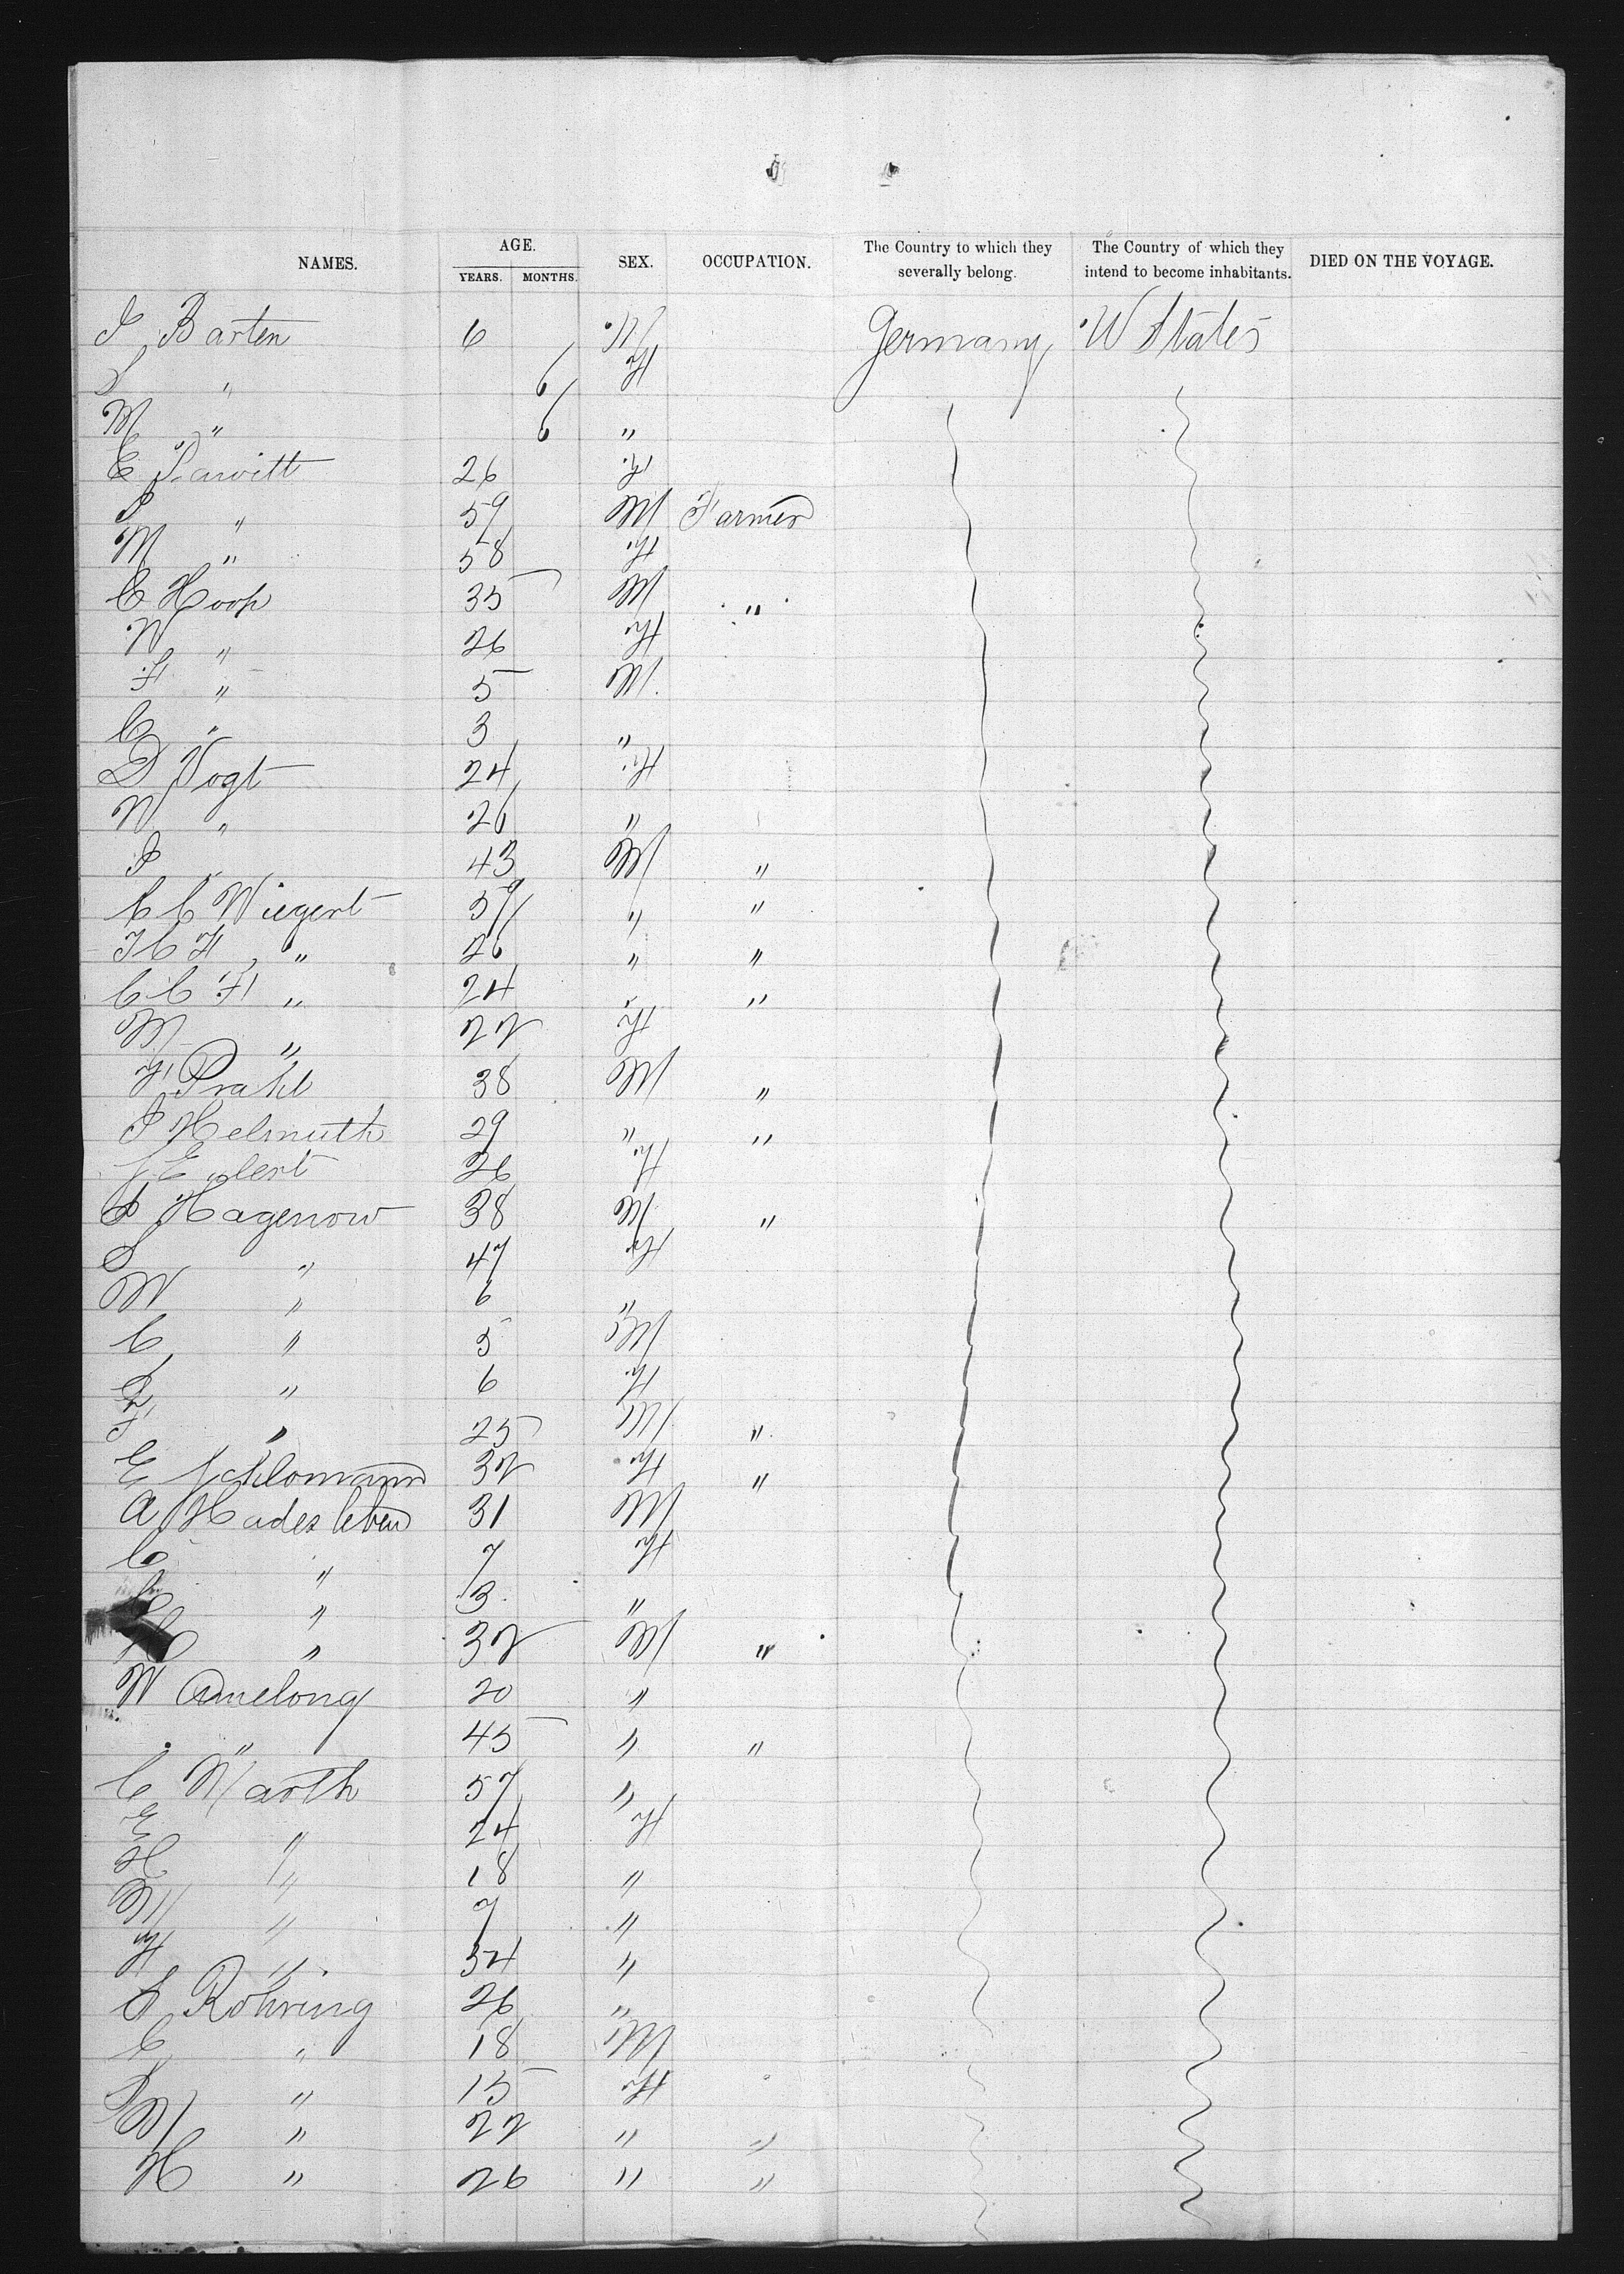 NAMES. AGE. YEARS. MONTHS. SEX. OCCUPATION. The Country to which they severally belong. The Country of which they intend to become inhabitants. DIED ON THE VOYAGE.
Barten 6 M Germany U States
S " 6 F
M " 6 "
E 26 F
" 59 M Farmer
M " 58 F
C Hoop 35 M "
W " 26 F
F " 5 M
C " 3 "
D Vogt 24 F
W " 26 "
J 43 M "
C C Wiegert 59 " "
H C F " 26 " "
C C F " 24 " "
M " 22 F
F Prahl 38 M "
J Helmuth 29 " "
26 F
Hagenow 38 M "
S " 47 F
W " 6 "
C " 5 M
" 6 F
F " 25 M "
E Schlomann 32 F "
A Hadesleben 31 M
C " 7 F
" 3 "
" 32 M "
W Amelong 20 "
" 45 " "
C Warth 57 "
E " 24 F
H " 18 "
M " 7 "
" 54 "
S Rohring 26 "
C " 18 M
" 15 F
M " 22 " "
H " 26 " "